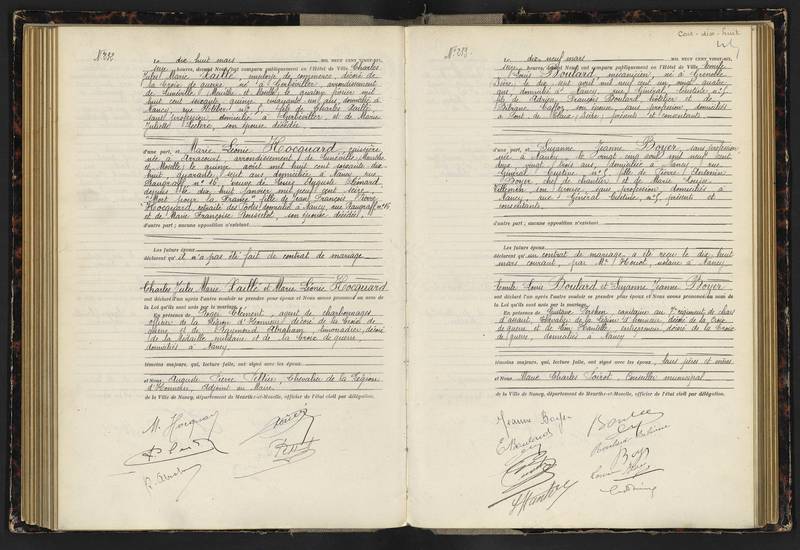 N° 252
Le dix huit mars MIL NEUF CENT VINGT-SIX,
onze heures, devant Nous ont comparu publiquement en l'Hôtel de Ville Charles
Jules Marie Xaillé, employé de commerce, décoré de
la Croix de guerre, né à Gerbéviller, arrondissement
de Lunéville, Meurthe et Moselle, le quatorze février mil
huit cent soixante quinze, cinquante un ans, domicilié à
Nancy, rue Hébert n° 5, fils de Charles Xaillé,
sans profession, domicilié à Gerbéviller et de Marie
Juliette Leclerc, son épouse décédée
d'une part, et Marie Léonie Hocquard, cuisinière
née à Arracourt, arrondissement de Lunéville, Meurthe
et Moselle, le quatorze août mil huit cent soixante dix
huit, quarante sept ans, domiciliée à Nancy, rue
Saugraff n° 16, veuve de Louis Auguste Liénard
depuis le dix huit janvier mil neuf cent seize,
"Mort pour la France" fille de Jean François Pierre
Hocquard, retraité des Postes, domicilié à Nancy, rue Saugraff n° 16
et de Marie Françoise Rousselot, son épouse décédée
d'autre part ; aucune opposition n'existant
Les futurs époux
déclarent qu'il n'a pas été fait de contrat de mariage
Charles Jules Marie Xaillé et Marie Léonie Hocquard
ont déclaré l'un après l'autre vouloir se prendre pour époux et Nous avons prononcé au nom de
la Loi qu'ils sont unis par le mariage.
En présence de Roger Clément, agent de charbonnages
officier de la Légion d'Honneur, décoré de la Croix de
guerre et de Raymond Abraham, limonadier, décoré
de la Médaille militaire et de la Croix de guerre,
domiciliés à Nancy.
témoins majeurs, qui, lecture faite, ont signé avec les époux
et Nous Auguste Pierre Peltier, Chevalier de la Légion
d'Honneur, Adjoint au Maire
de la Ville de Nancy, département de Meurthe-et-Moselle, officier de l'état civil par délégation.
M. Hocquard
Cent-dix-huit
N° 253
Le dix neuf mars MIL NEUF CENT VINGT-SIX,
heures, devant Nous ont comparu publiquement en l'Hôtel de Ville Emile
Louis Boulard, mécanicien, né à Grenoble
Isère, le dix sept avril mil neuf cent un, vingt quatre
ans, domicilié à Nancy, rue Général Custine n° 5,
fils de Adrien François Boulard, hôtelier et de
son épouse, sans profession, domiciliés
à Pont de Claix, Isère ; présents et consentants
d'une part, et Suzanne Jeanne Boyer, sans profession
née à Nancy le vingt cinq août mil neuf cent
deux, vingt trois ans, domiciliée à Nancy, rue
Général Custine n° 5, fille de Pierre Antonin
Boyer, chef de chantier et de Marie Louise
son épouse, sans profession, domiciliés à
Nancy, rue Général Custine, n° 5, présents et
consentants,
d'autre part ; aucune opposition n'existant
Les futurs époux
déclarent qu'un contrat de mariage a été reçu le dix huit
mars courant, par Me Houot, notaire à Nancy.
Emile Louis Boulard et Suzanne Jeanne Boyer
ont déclaré l'un après l'autre vouloir se prendre pour époux et Nous avons prononcé au nom de
la Loi qu'ils sont unis par le mariage.
En présence de Gustave capitaine au régiment de chars
d'assaut, Chevalier de la Légion d'honneur, décoré de la Croix
de guerre et de entrepreneur, décoré de la Croix
de guerre, domiciliés à Nancy
témoins majeurs, qui, lecture faite, ont signé avec les époux, leurs pères et mères
et Nous Marie Charles Conseiller municipal
de la Ville de Nancy, département de Meurthe-et-Moselle, officier de l'état civil par délégation.
Jeanne Boyer
E. Boulard